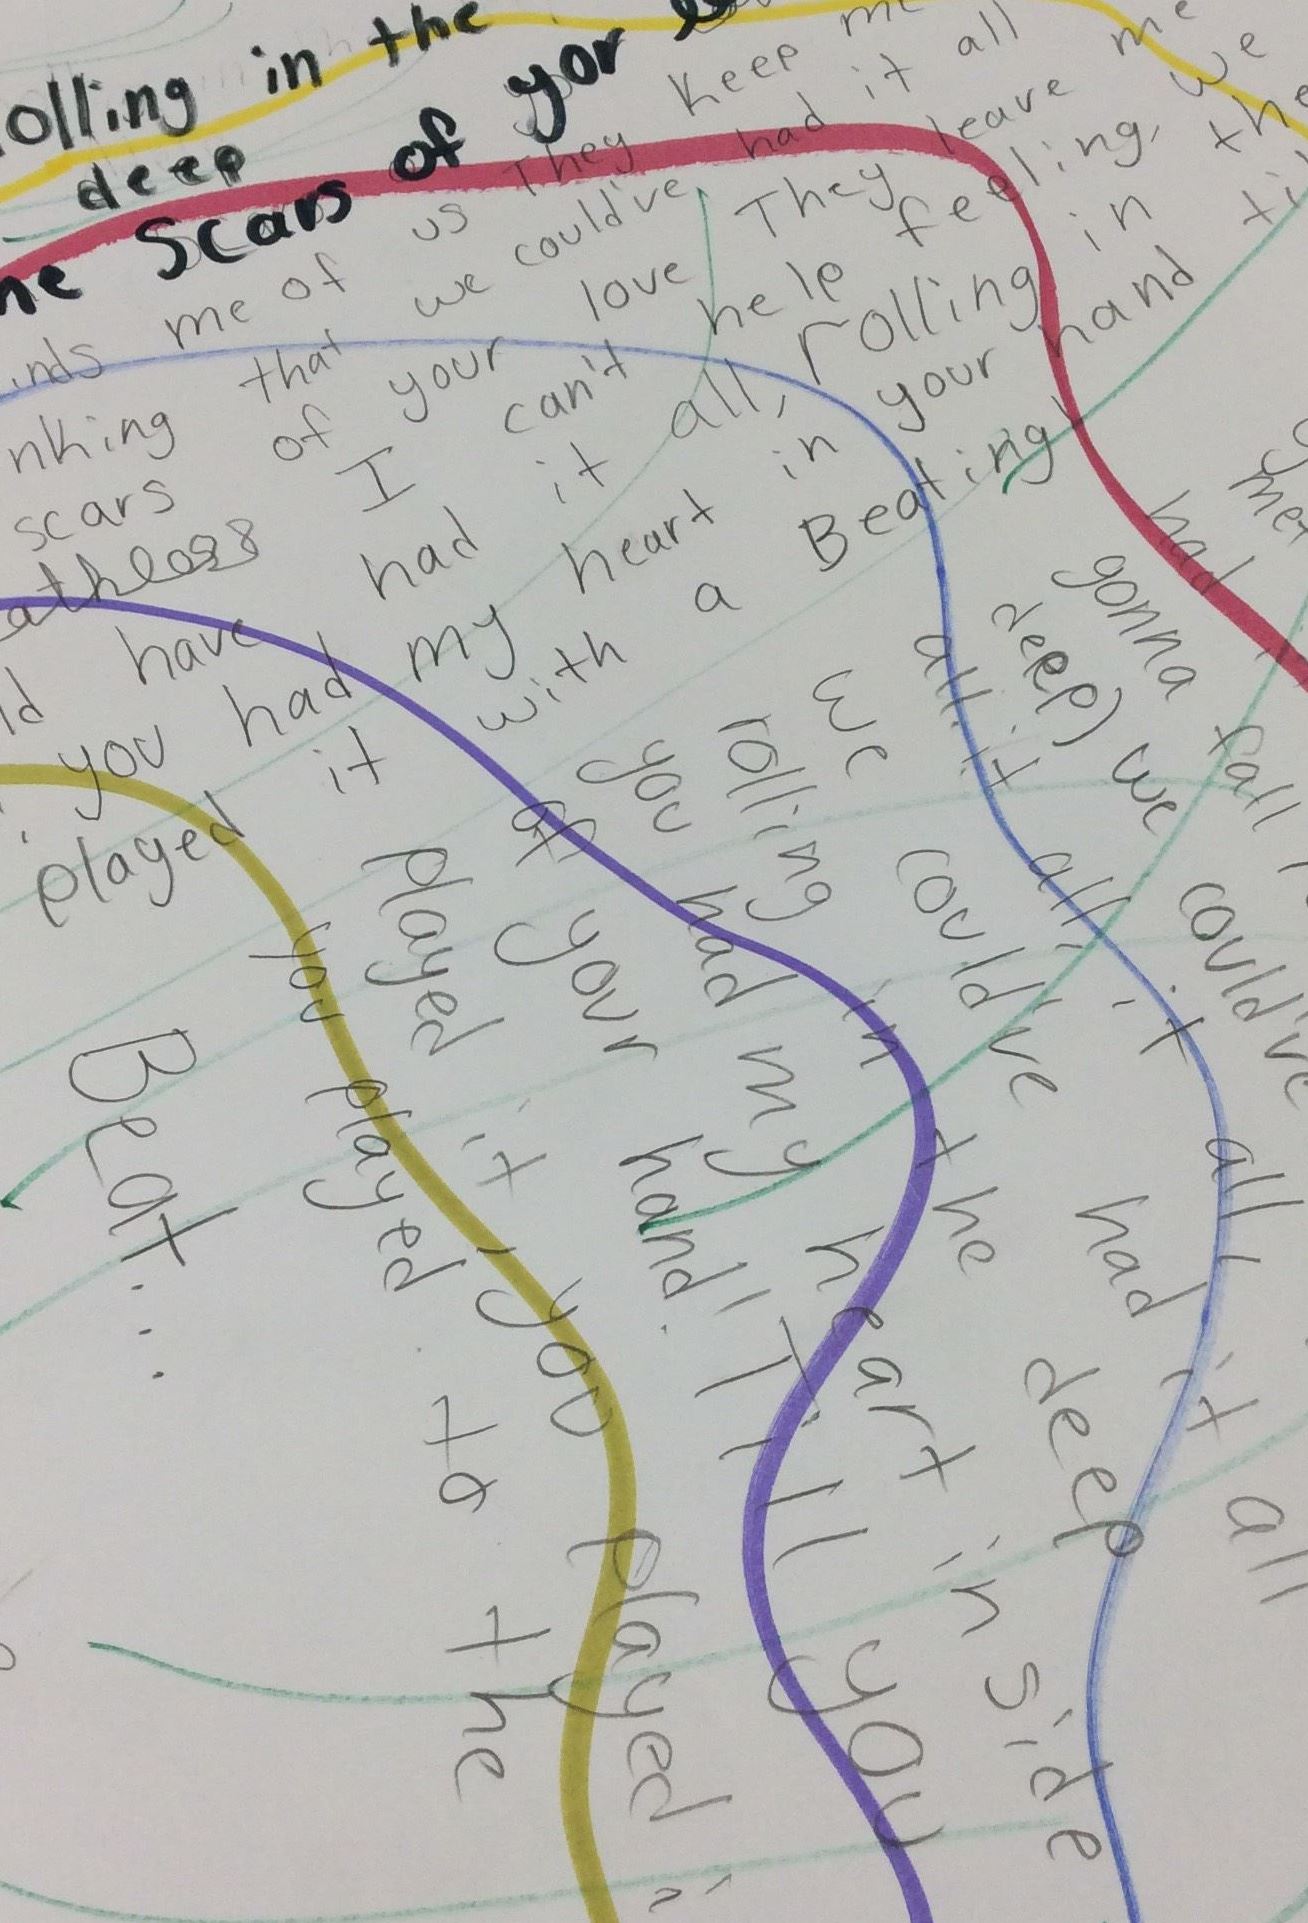 olling in the
deep
Scars of yor
inds me of us They keep me
nking that we could've had it all
scars of your love They leave me
athless I can't help feeling, we
ld have had it all, rolling in the
you had my heart in your hand
played it with a Beating
had
gonna fall
deep) we could've
all it all, it all
we could've had it all
rolling in the deep
you had my heart in side
of your hand! Till you
played it, you played
you played to the
Beat...